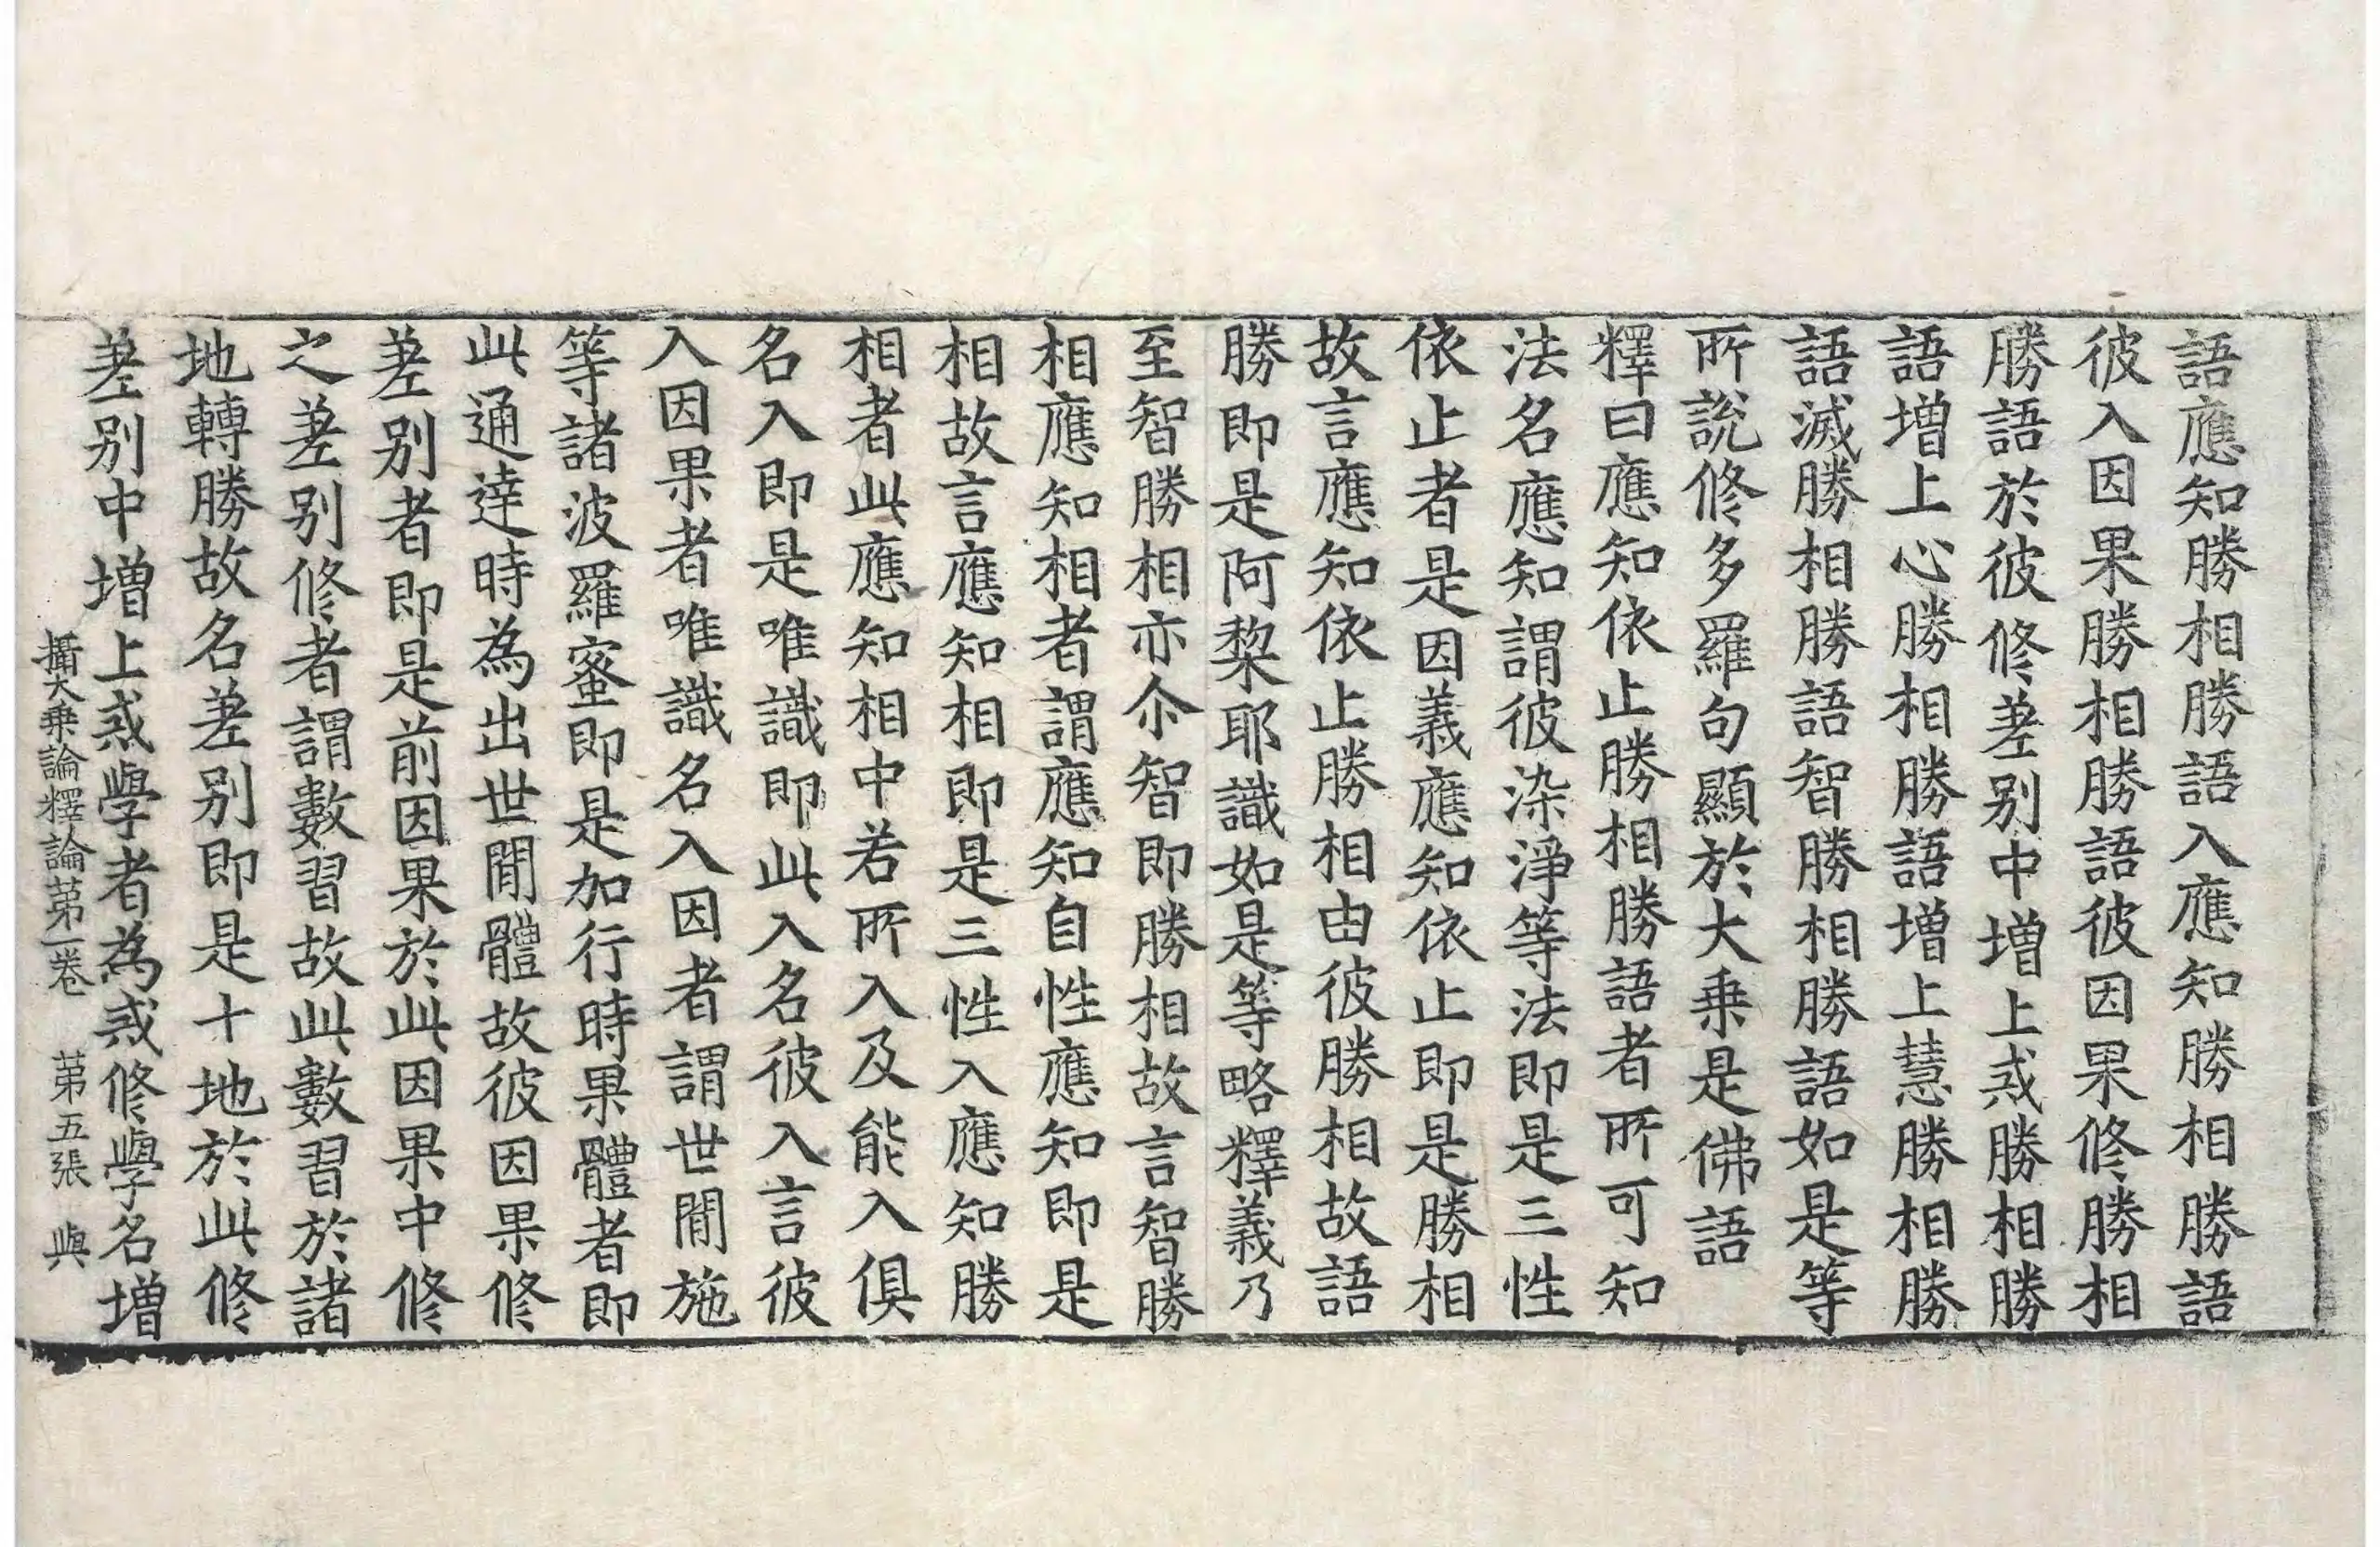 語應知勝相勝語入應知勝相勝語
彼入因果勝相勝語彼因果修勝相
勝語於彼修差别中增上戒勝相勝
語增上心勝相勝語增上慧勝相勝
語滅勝相勝語智勝相勝語如是等
所說修多羅句顯於大乗是佛語
釋曰應知依止勝相勝語者所可知
法名應知謂彼染淨等法即是三性
依止者是因義應知依止即是勝相
故言應知依止勝相由彼勝相故語
勝即是阿黎耶識如是等略釋義乃
至智勝相亦尒智即勝相故言智勝
相應知相者謂應知自性應知即是
相故言應知相即是三性入應知勝
相者此應知相中若所入及能入俱
名入即是唯識即此入名彼入言彼
入因果者唯識名入因者謂世間施
等諸波羅蜜即是加行時果體者即
此通達時為出世間體故彼因果修
差别者即是前因果於此因果中修
之差别修者謂數習故此數習於諸
地轉勝故名差别即是十地於此修
差别中增上戒學者為戒修學名增
攝大乗論釋論第一卷 第五張 與